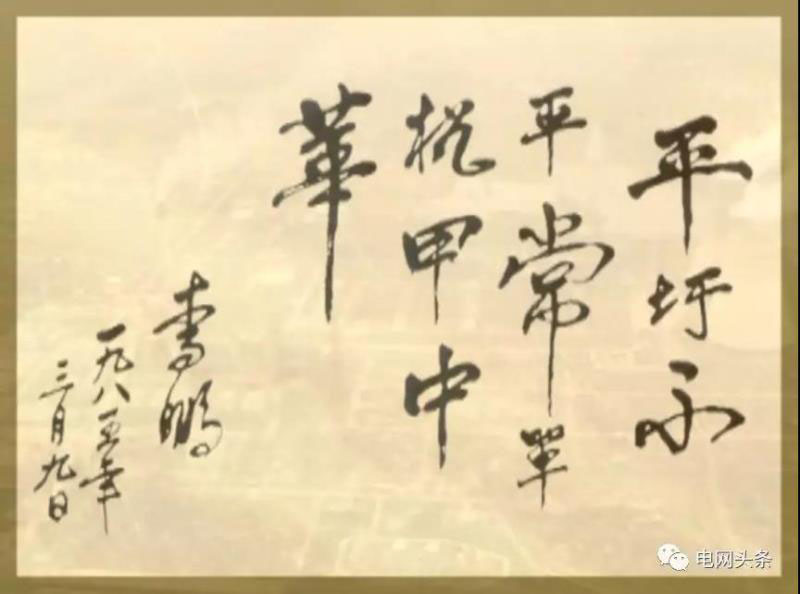 平圩不
平常單
机甲中
華
李鹏
一九八五年
三月九日
电网头条